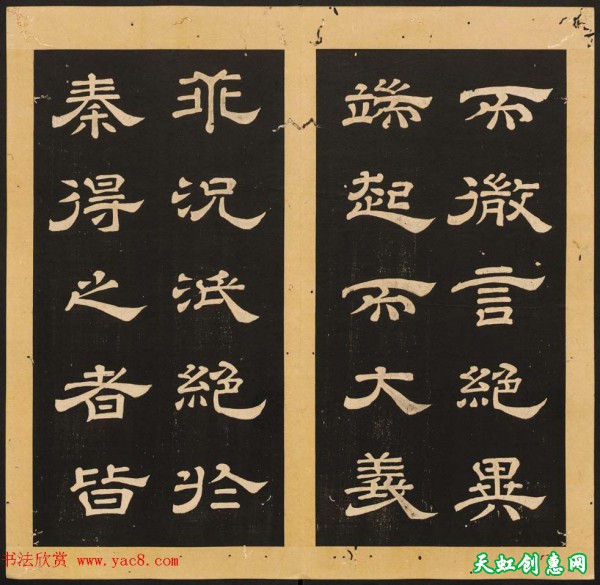 而微言絕異
端起而大義
乖況泯絕於
秦得之者皆
书法欣赏 www.yac8.com
天虹创惠网